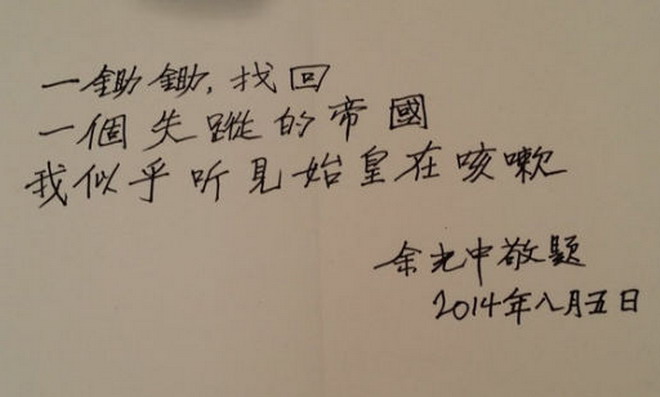 一鋤鋤,找回
一個失蹤的帝國
我似乎听見始皇在咳嗽
余光中敬題
2014年八月五日